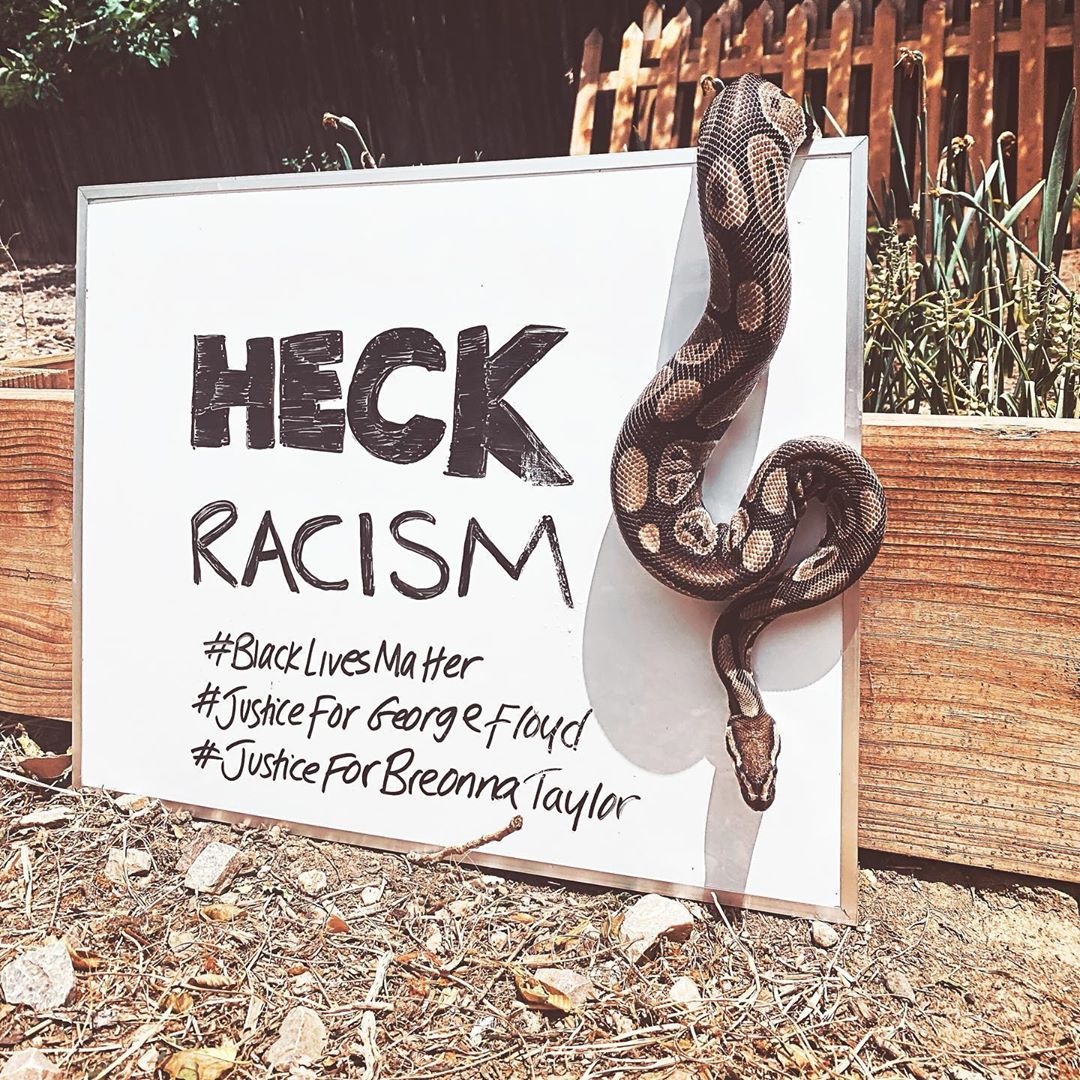 HECK
RACISM
#BlackLivesMatter
#JusticeForGeorgeFloyd
#JusticeForBreonnaTaylor